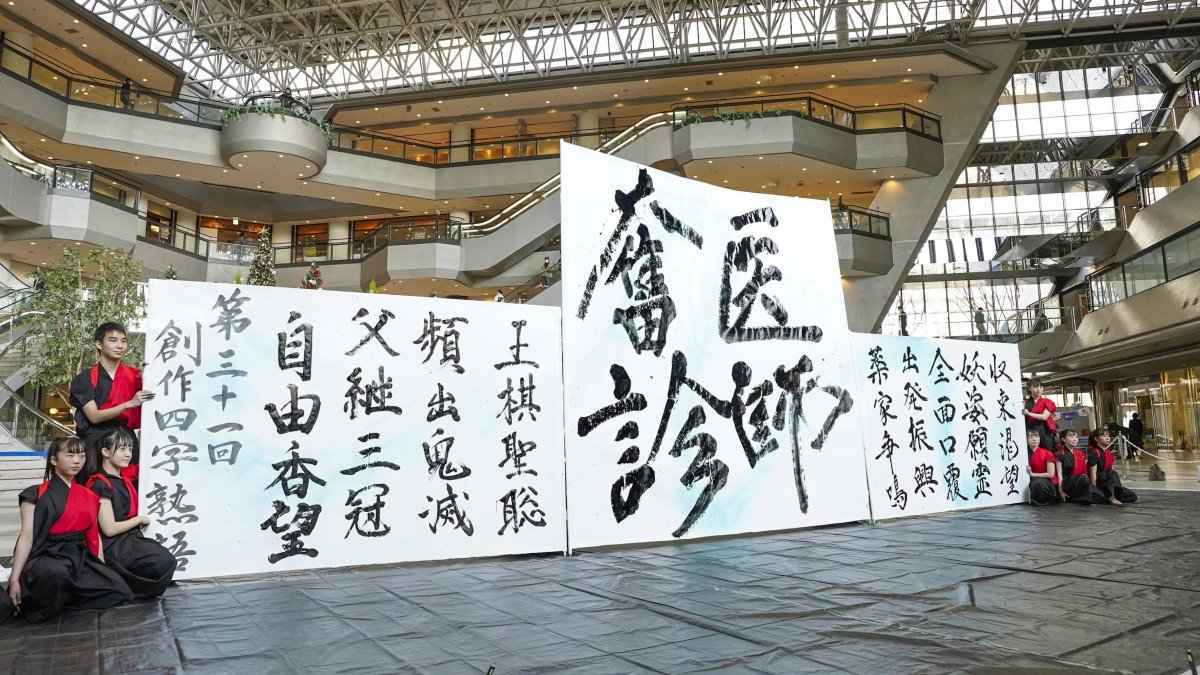 収束渇望
妖姿願霊
全面口覆
出発振興
薬家争鳴
医師
奮診
王棋聖聡
頻出鬼滅
父継三冠
自由香望
第三十一回
創作四字熟語